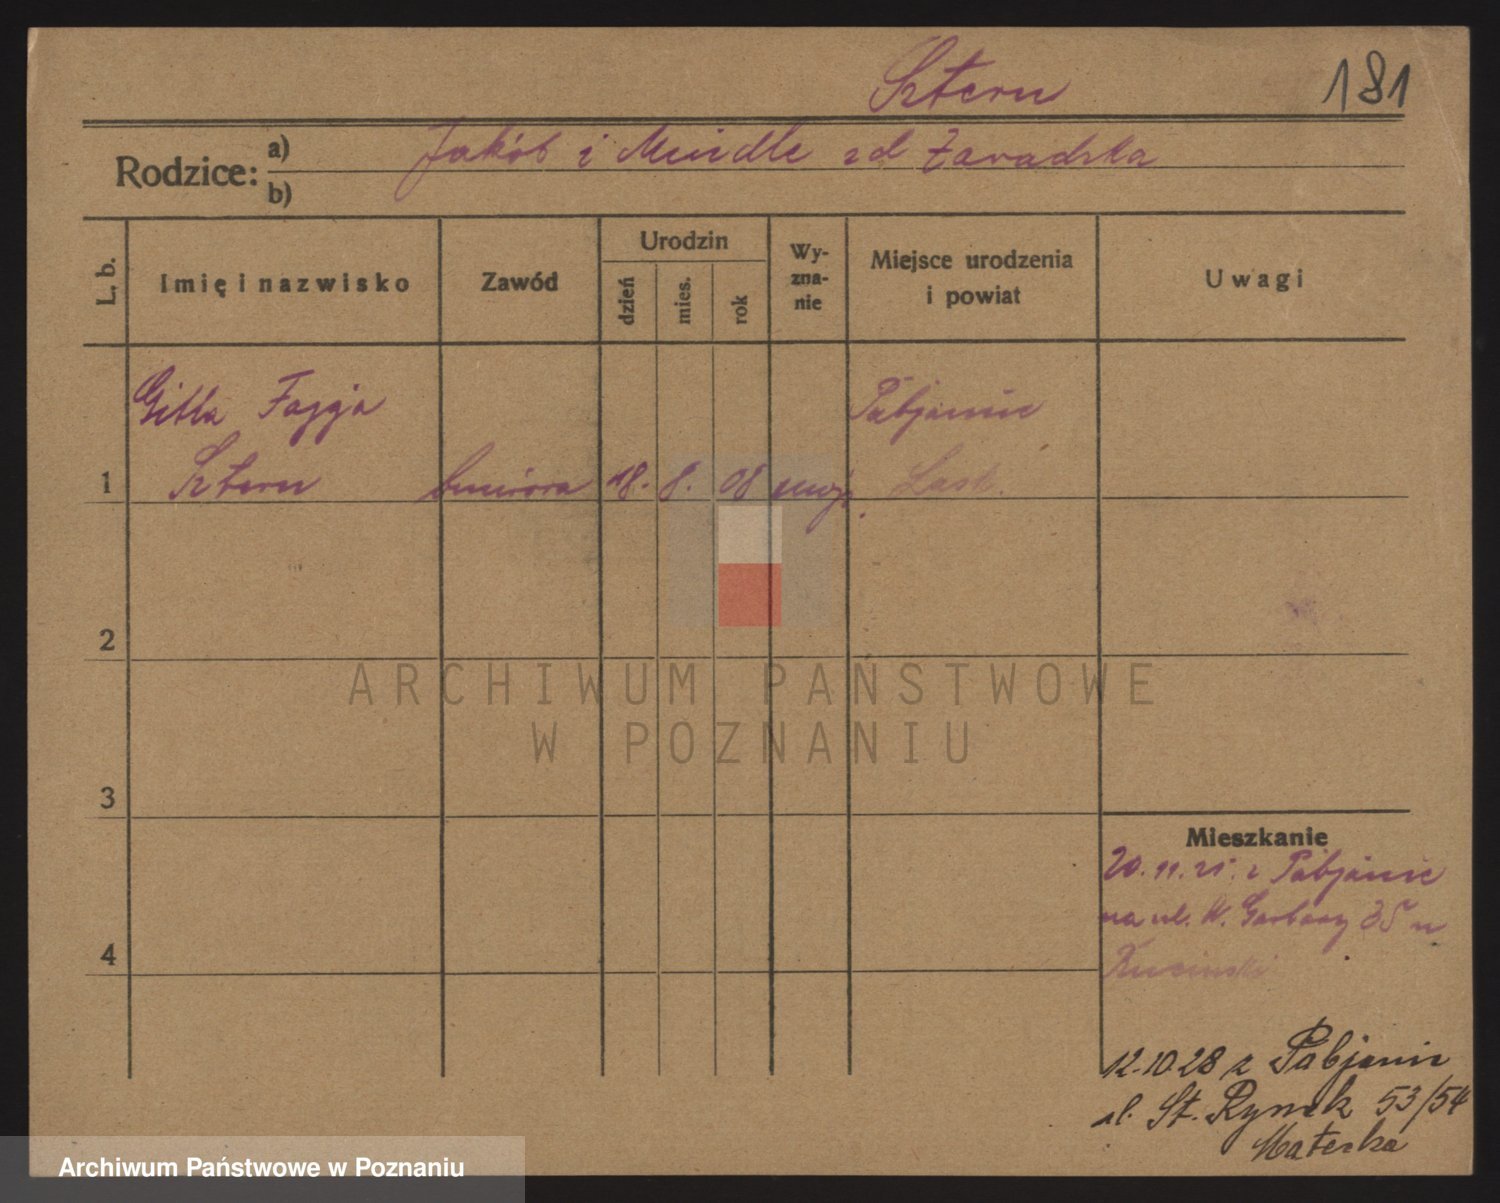 Sztern
181
Rodzice:
a) Jakób i Mindle zd Zawadzka
b)
L. b.
Imię i nazwisko
Zawód
Urodzin
dzień
mies.
rok
Wy-
zna-
nie
Miejsce urodzenia
i powiat
Uwagi
Gitla Fajga
Pabjanic
1 Sztern 18. 8. 08 mojż. Łask.
2
ARCHIWUM PAŃSTWOWE
W POZNANIU
3
Mieszkanie
20.11.25. z Pabjanic
na ul. W. Garbary 35 u
4
12.10.28 z Pabjanic
ul. St. Rynek 53/54
Archiwum Państwowe w Poznaniu